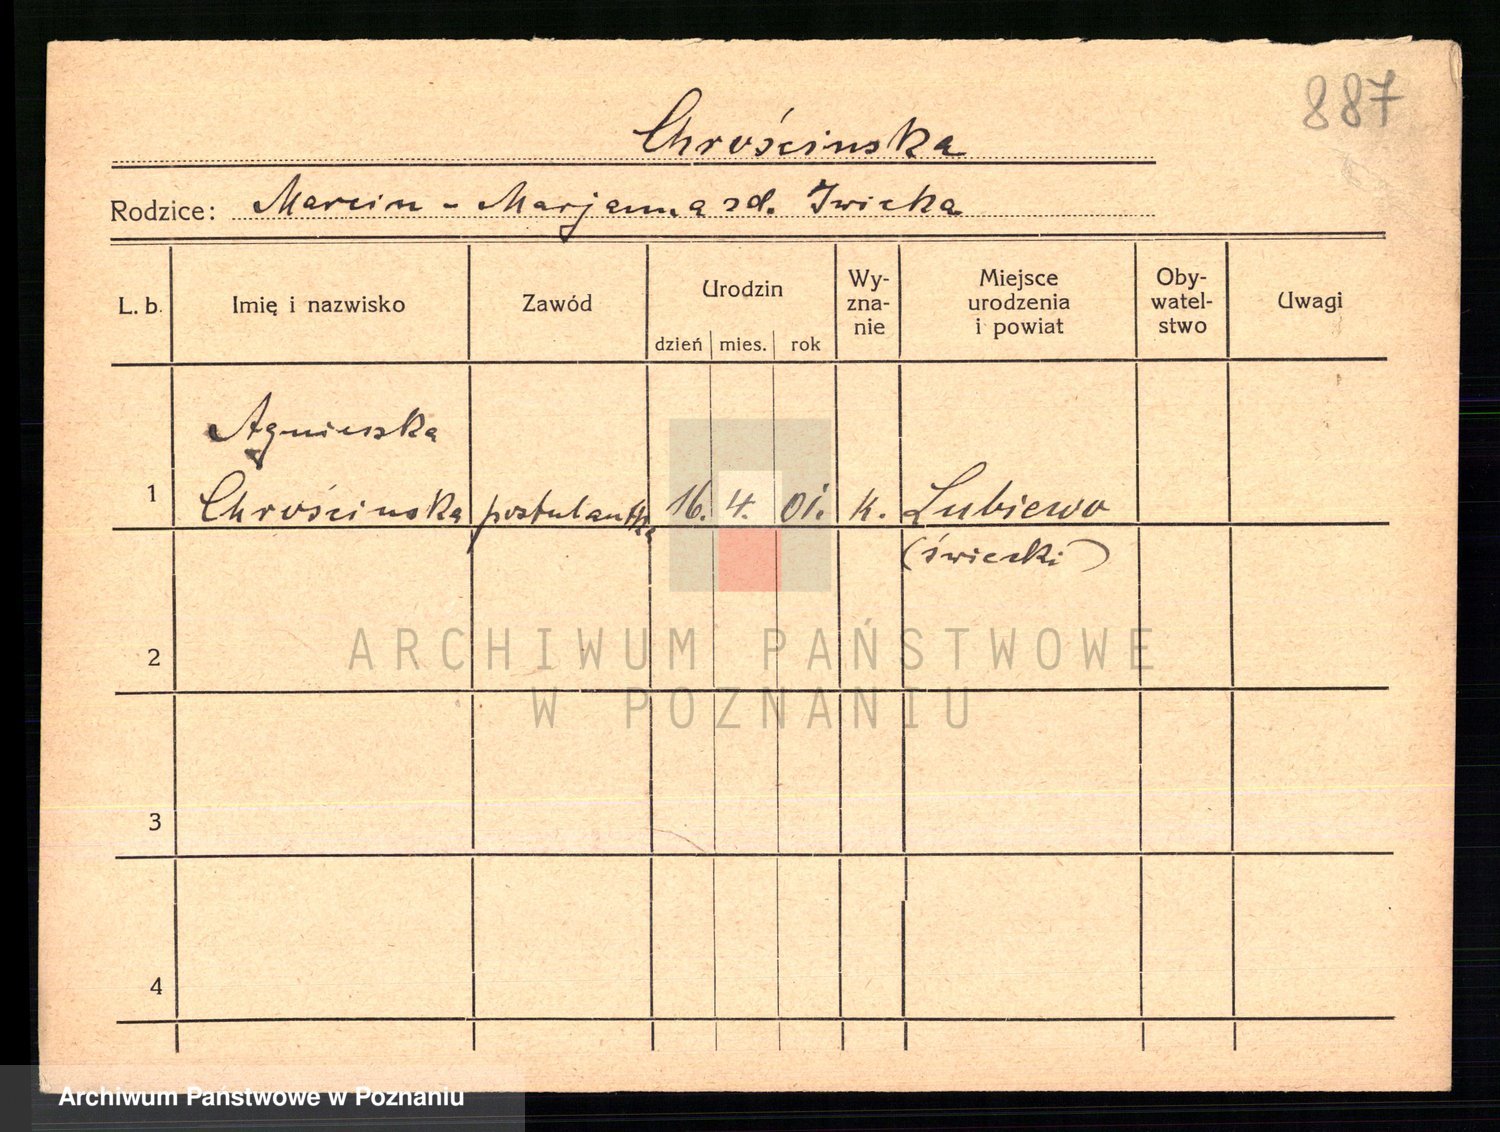 887
Chrościnska
Rodzice: Marcin - Marjanna zd. Iwicka
L. b. Imię i nazwisko Zawód Urodzin Wy- Miejsce Oby- Uwagi
zna- urodzenia watel-
nie i powiat stwo
dzień mies. rok
Agnieszka
1 Chrościnska postulantka 16. 4. 01. k. Lubiewo
(świecki)
2
3
4
ARCHIWUM PAŃSTWOWE
W POZNANIU
Archiwum Państwowe w Poznaniu